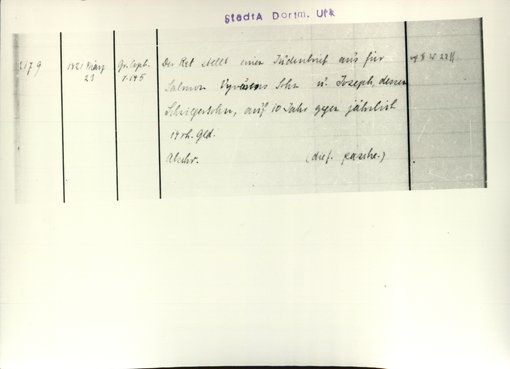 StadtA Dortm. Urk
2179
1421 März
23
Gr. Coplb.
Der Rat stellt einen Judenbrief aus für
Salmon Vyvärns Sohn u. Joseph, dessen
Schwiegersohn, auf 10 Jahr gegen jährlich
14 rh. Gld.
Abschr. (dref.